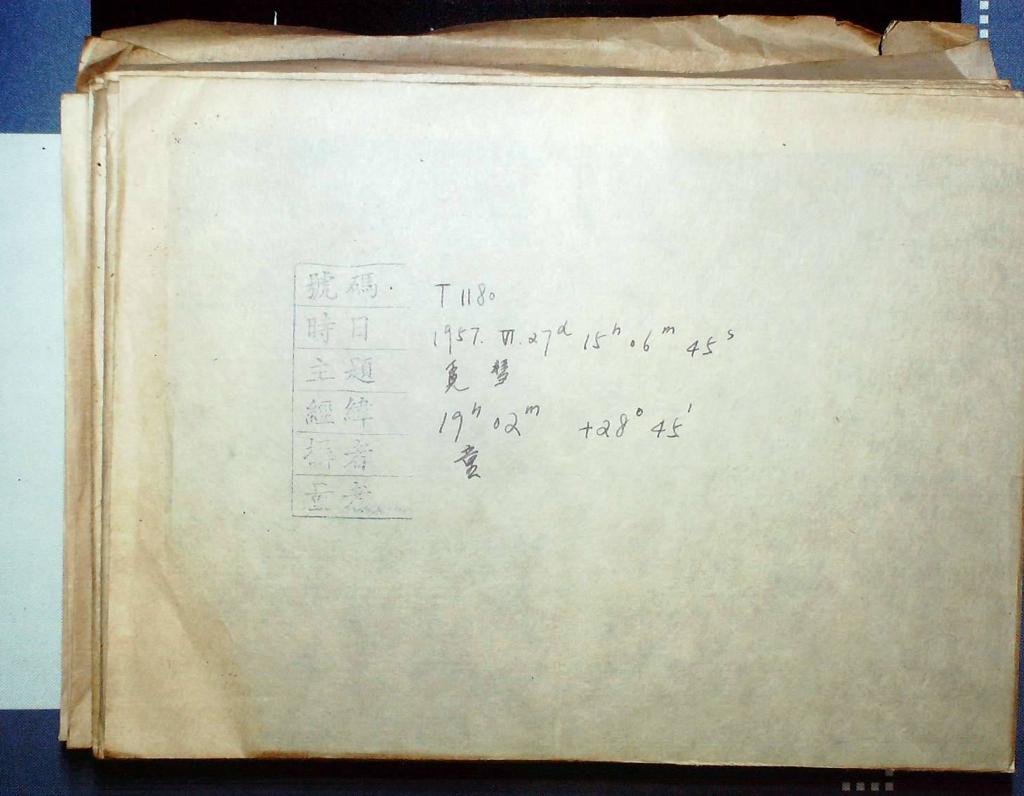 號碼 T 1180
時日 1957. VI. 27ᵈ 15ʰ 06ᵐ 45ˢ
主題 覓彗
經緯 19ʰ 02ᵐ +28° 45'
攝者
量者